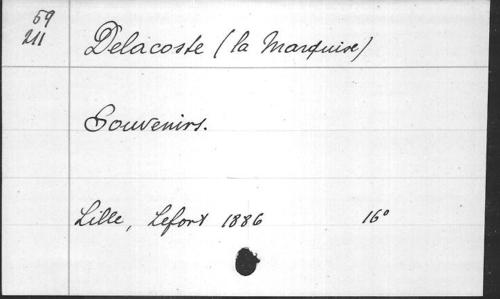 59
211
Delacoste (la Marquise)
Souvenirs.
Lille, Lefort 1886 16°